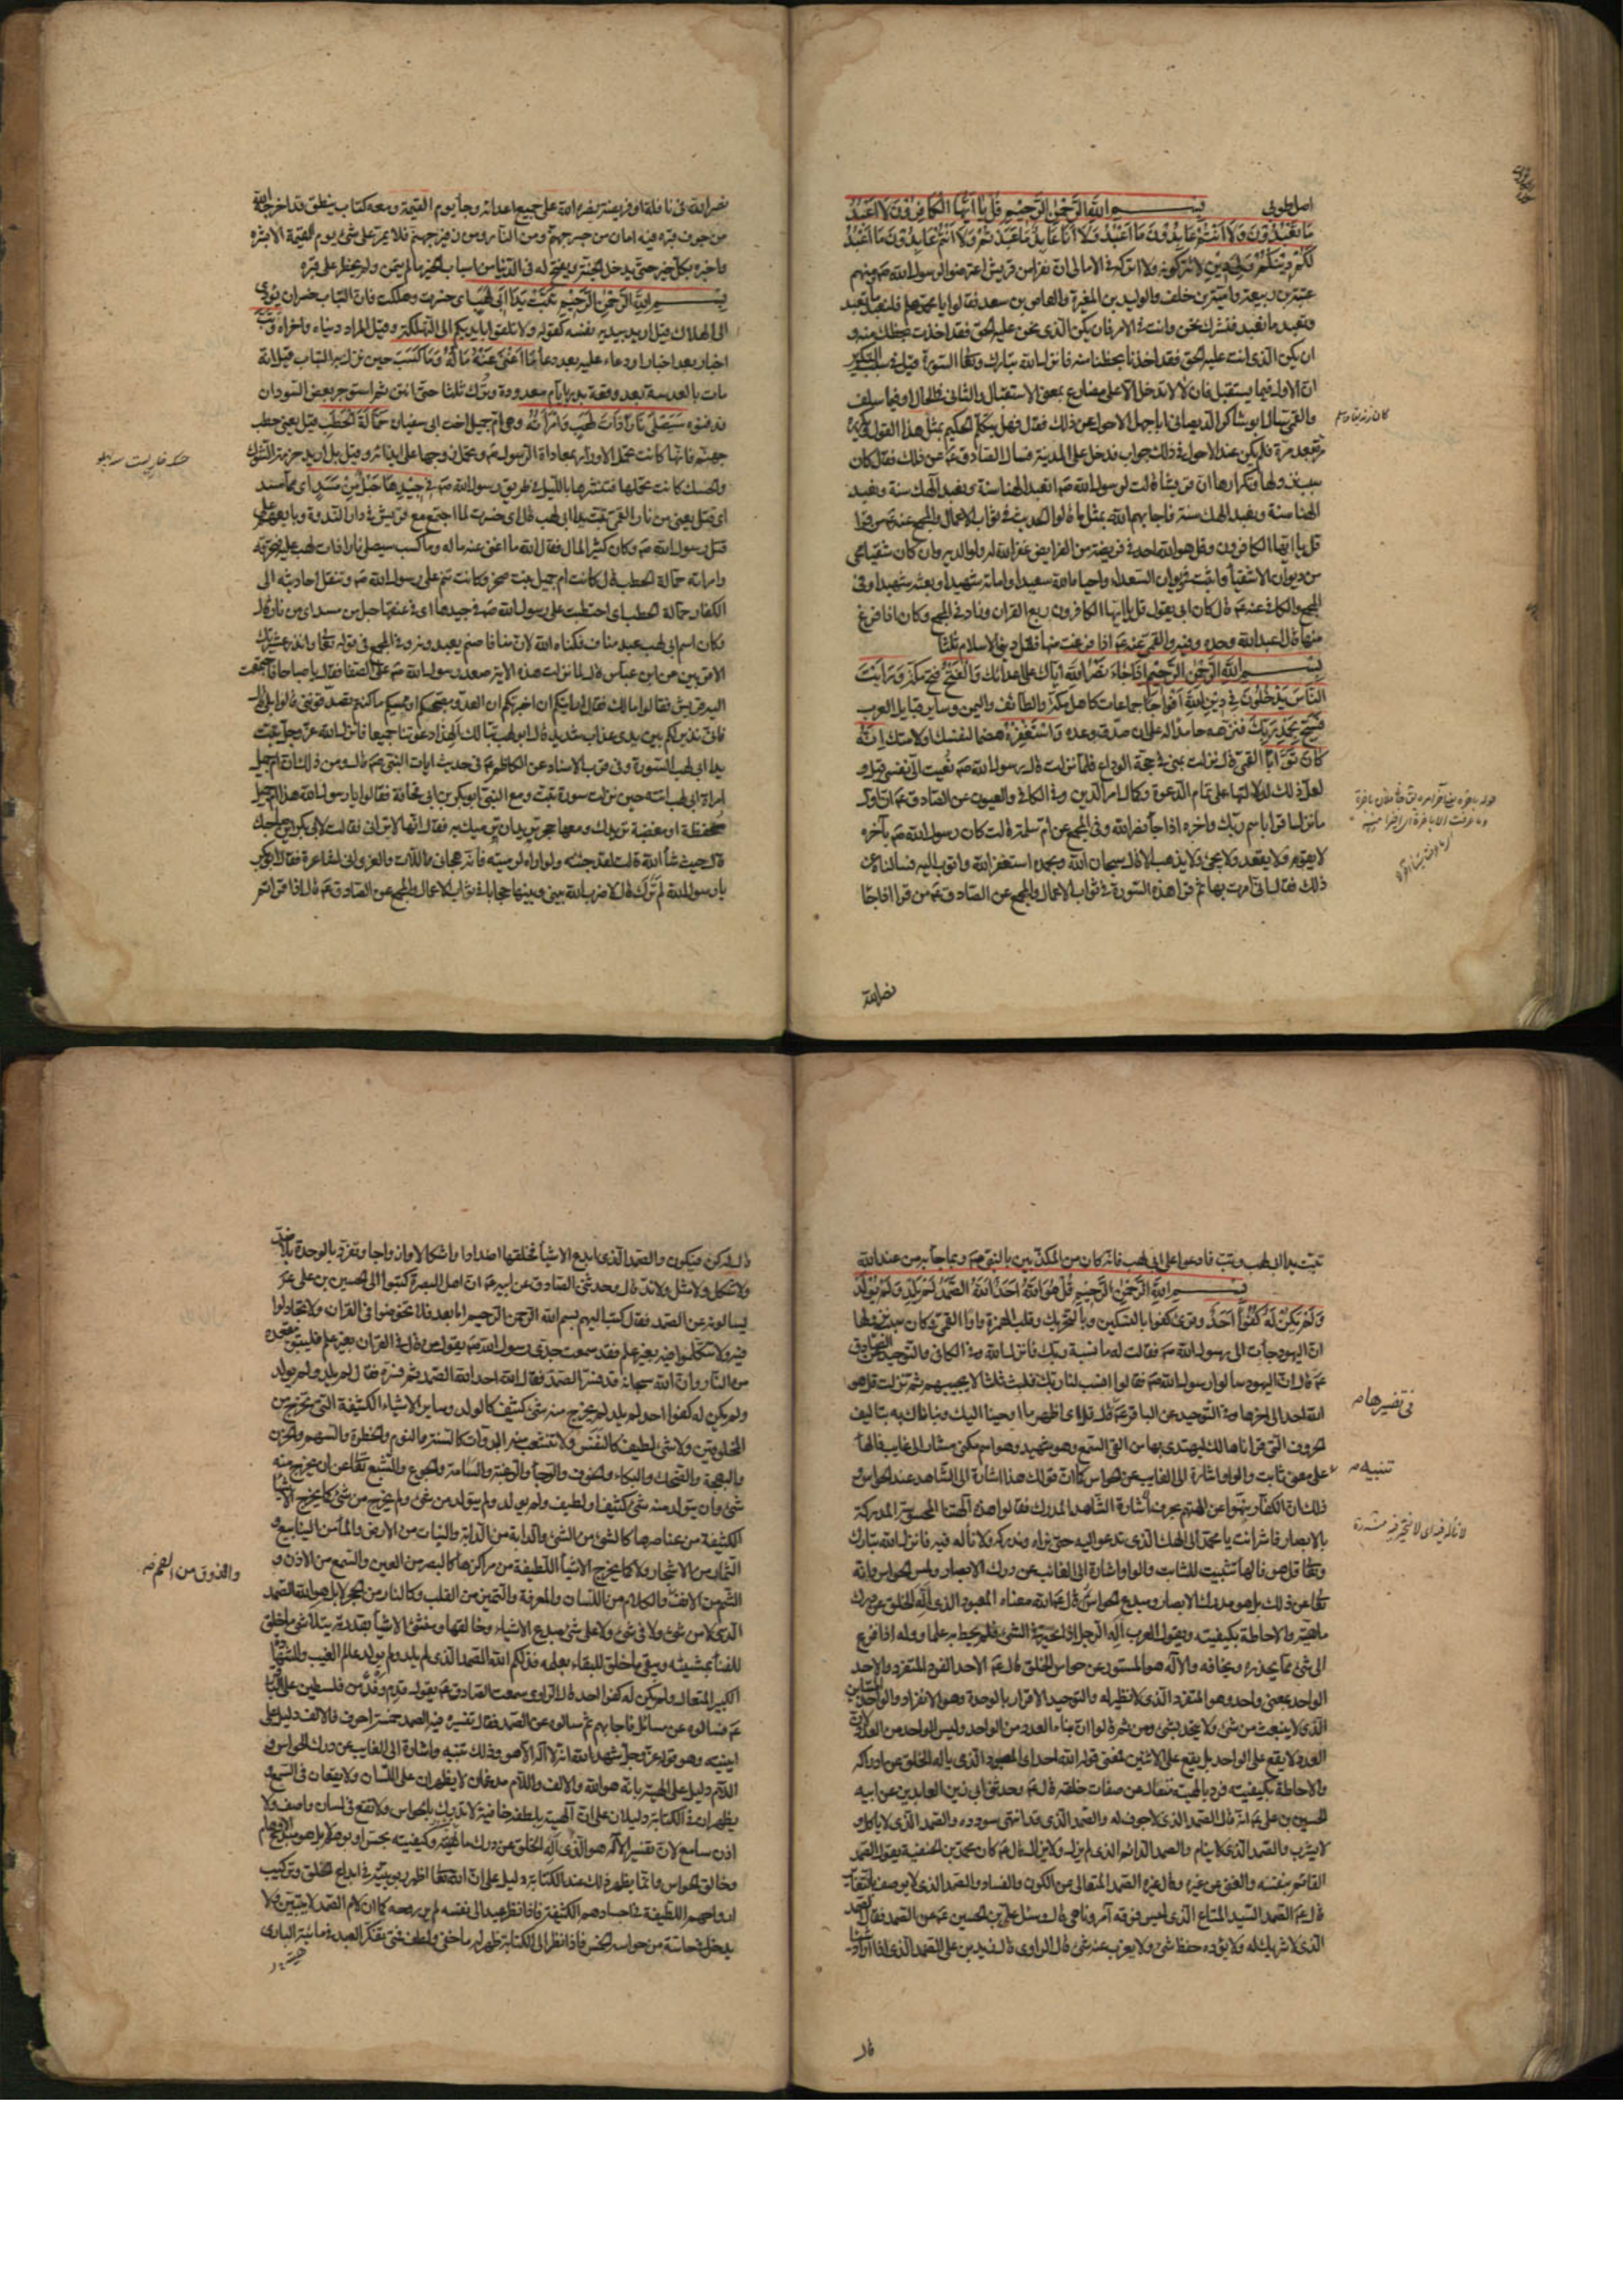 اصل طوبى بسم الله الرحمن الرحيم قُلْ يَا أَيُّهَا الْكَافِرُونَ لَا أَعْبُدُ
مَا تَعْبُدُونَ وَلَا أَنْتُمْ عَابِدُونَ مَا أَعْبُدُ وَلَا أَنَا عَابِدٌ مَا عَبَدْتُمْ وَلَا أَنْتُمْ عَابِدُونَ مَا أَعْبُدُ
لَكُمْ دِينُكُمْ وَلِيَ دِينِ لا اتركه في الامالى ان نفرا من قريش اعترضوا لرسول الله صم منهم
عتبة بن ربيعة وامية بن خلف والوليد بن المغيرة والعاص بن سعد فقالوا يا محمد هلم فلنعبد ما تعبد
وتعبد ما نعبد فنشترك نحن وانت في الامر فان يكن الذى نحن عليه الحق فقد اخذت بحظك منه و
ان يكن الذى انت عليه الحق فقد اخذنا بحظنا منه فانزل الله تبارك وتعالى السورة قيل في سبب التكرير
ان الاول فيما يستقبل فان لا لا تدخل الا على مضارع بمعنى الاستقبال والثانى في الحال او فيما سلف
والقمى سال ابو شاكر الديصانى ابا جعفر الاحول عن ذلك فقال فهل يتكلم الحكيم بمثل هذا القول ويكرره
مرة بعد مرة فلم يكن عند الاحول في ذلك جواب فدخل على المدينة فسال الصادق عم عن ذلك فقال كان
سبب نزولها وتكرارها ان قريشا قالت لرسول الله صم تعبد الهنا سنة ونعبد الهك سنة وتعبد
الهنا سنة ونعبد الهك سنة فاجابهم الله بمثل ما قالوا الحديث في ثواب الاعمال والمجمع عنه عم من قرا
قل يا ايها الكافرون وقل هو الله احد في فريضة من الفرايض غفر الله له ولوالديه وان كان شقيا محى
من ديوان الاشقيا واثبت في ديوان السعداء واحياه الله سعيدا واماته شهيدا وبعثه شهيدا وفى
المجمع والكافى عنه عم قال كان ابى يقول قل يا ايها الكافرون ربع القران وزاد في المجمع وكان اذا فرغ
منها قال اعبد الله وحده وفيه والقمى عنه عم اذا فرغت منها فقل دينى الاسلام ثلثا
بسم الله الرحمن الرحيم إِذَا جَاءَ نَصْرُ اللَّهِ اياك على اعدائك وَالْفَتْحُ فتح مكة وَرَأَيْتَ
النَّاسَ يَدْخُلُونَ فِي دِينِ اللَّهِ أَفْوَاجًا جماعات كاهل مكة والطائف واليمن وساير قبايل العرب
فَسَبِّحْ بِحَمْدِ رَبِّكَ فنزهه حامدا له على ان صدق وعده وَاسْتَغْفِرْهُ هضما لنفسك ولامتك إِنَّهُ
كَانَ تَوَّابًا القمى قال نزلت بمنى في حجة الوداع فلما نزلت قال رسول الله صم نعيت الى نفسى قيل و
لعل ذلك لدلالتها على تمام الدعوة وكمال امر الدين وفى الكافى والعيون عن الصادق عم ان اول
ما نزل اقرا باسم ربك واخره اذا جاء نصر الله وفى المجمع عن ام سلمة قالت كان رسول الله صم بآخره
لا يقوم ولا يقعد ولا يجئ ولا يذهب الا قال سبحان الله وبحمده استغفر الله واتوب اليه فسالناه عن
ذلك فقال انى امرت بها ثم قرا هذه السورة في ثواب الاعمال والمجمع عن الصادق عم من قرا اذا جاء
نصر الله
نصر الله في نافلة او فريضة نصره الله على جميع اعدائه وجاء يوم القيمة ومعه كتاب ينطق قد اخرجه الله
من جوف قبره فيه امان من حر جهنم ومن النار ومن زفير جهنم فلا يمر على شئ يوم القيمة الا بشره
واخبره بكل خير حتى يدخل الجنة ويفتح له في الدنيا من اسباب الخير ما لم يتمن ولم يخطر على قلبه
بسم الله الرحمن الرحيم تَبَّتْ يَدَا أَبِي لَهَبٍ اى خسرت وهلكت فان التباب خسران يؤدى
الى الهلاك قيل اريد بيديه نفسه كقوله ولا تلقوا بايديكم الى التهلكة وقيل المراد دنياه واخراه وَتَبَّ
اخبار بعد اخبار او دعاء عليه بعد دعاء مَا أَغْنَى عَنْهُ مَالُهُ وَمَا كَسَبَ حين نزل به التباب قيل انه
مات بالعدسة بعد وقعة بدر بايام معدودة وترك ثلثا حتى انتن ثم استوجر بعض السودان
فدفنوه سَيَصْلَى نَارًا ذَاتَ لَهَبٍ وَامْرَأَتُهُ وهى ام جميل اخت ابى سفيان حَمَّالَةَ الْحَطَبِ قيل يعنى حطب
جهنم فانها كانت تحمل الاوزار بمعاداة الرسول عم وتحمل زوجها على ايذائه وقيل بل اريد حزمة الشوك
والحسك كانت تحملها فتنثرها بالليل في طريق رسول الله صم فِي جِيدِهَا حَبْلٌ مِنْ مَسَدٍ اى مما مسد
اى فتل يعنى من نار القمى تبت يدا ابى لهب قال اى خسرت لما اجتمع مع قريش في دار الندوة وبايعهم على
قتل رسول الله صم وكان كثير المال فقال الله ما اغنى عنه ماله وما كسب سيصلى نارا ذات لهب عليه فتحرقه
وامراته حمالة الحطب قال كانت ام جميل بنت صخر وكانت تنم على رسول الله صم وتنقل احاديثه الى
الكفار حمالة الحطب اى احتطبت على رسول الله صم في جيدها اى في عنقها حبل من مسد اى من نار قال
وكان اسم ابى لهب عبد مناف فكناه الله لان منافا صنم يعبدونه وفى المجمع في قوله تعالى وانذر عشيرتك
الاقربين عن ابن عباس قال لما نزلت هذه الاية صعد رسول الله صم على الصفا فقال يا صباحاه فاجتمعت
اليه قريش فقالوا مالك فقال ارايتكم ان اخبرتكم ان العدو مصبحكم او ممسيكم ما كنتم تصدقوننى قالوا بلى قال
فانى نذير لكم بين يدى عذاب شديد قال ابو لهب تبا لك الهذا دعوتنا جميعا فانزل الله عز وجل تبت
يدا ابى لهب السورة وفى قرب الاسناد عن الكاظم عم في حديث ايات النبى صم قال ومن ذلك ان ام جميل
امراة ابى لهب اتته حين نزلت سورة تبت ومع النبى ابو بكر بن ابى قحافة فقالوا يا رسول الله هذه ام جميل
محفظة او مغضبة تريدك ومعها حجر تريد ان ترميك به فقال انها لا ترانى فقالت لابى بكر اين صاحبك
قال حيث شاء الله قالت لقد جئته ولو اراه لرميته فانه هجانى واللات والعزى انى لشاعرة فقال ابو بكر
يا رسول الله لم ترك قال لا ضرب الله بينى وبينها حجابا في ثواب الاعمال والمجمع عن الصادق عم قال اذا قراتم
تبت يدا ابى لهب وتب فادعوا على ابى لهب فانه كان من المكذبين بالنبى صم وبما جاء به من عند الله
بسم الله الرحمن الرحيم قُلْ هُوَ اللَّهُ أَحَدٌ اللَّهُ الصَّمَدُ لَمْ يَلِدْ وَلَمْ يُولَدْ
وَلَمْ يَكُنْ لَهُ كُفُوًا أَحَدٌ وقرئ كفوا بالتسكين وبالتحريك وقلب الهمزة واوا القمى وكان سبب نزولها
ان اليهود جاءت الى رسول الله صم فقالت له ما نسبة ربك فانزل الله وفى الكافى والتوحيد عن الصادق
عم قال ان اليهود سالوا رسول الله صم فقالوا انسب لنا ربك فلبث ثلثا لا يجيبهم ثم نزلت قل هو
الله احد الى اخرها وفى التوحيد عن الباقر عم قال قل اى اظهر ما اوحينا اليك ونبأناك به بتاليف
الحروف التى قراناها لك ليهتدى بها من القى السمع وهو شهيد وهو اسم مكنى مشار الى غايب فالهاء
على معنى ثابت والواو اشارة الى الغايب عن الحواس كما ان قولك هذا اشارة الى الشاهد عند الحواس و
ذلك ان الكفار نبهوا عن الهتهم بحرف اشارة الشاهد المدرك فقالوا هذه آلهتنا المحسوسة المدركة
بالابصار فاشر انت يا محمد الى الهك الذى تدعوا اليه حتى نراه وندركه ولا ناله فيه فانزل الله تبارك
وتعالى قل هو فالهاء تثبيت للثابت والواو اشارة الى الغائب عن درك الابصار ولمس الحواس وانه
تعالى عن ذلك بل هو مدرك الابصار ومبدع الحواس قال عم الله معناه المعبود الذى اله الخلق عن درك
ماهيته والاحاطة بكيفيته ويقول العرب اله الرجل اذا تحير في الشئ فلم يحط به علما ووله اذا فزع
الى شئ مما يحذره ويخافه والاله هو المستور عن حواس الخلق قال عم الاحد الفرد المتفرد والاحد
الواحد بمعنى واحد وهو المتفرد الذى لا نظير له والتوحيد الاقرار بالوحدة وهو الانفراد والواحد المتباين
الذى لا ينبعث من شئ ولا يتحد بشئ ومن ثم قالوا ان بناء العدد من الواحد وليس الواحد من العدد لان
العدد لا يقع على الواحد بل يقع على الاثنين فمعنى قوله الله احد اى المعبود الذى ياله الخلق عن ادراكه
والاحاطة بكيفيته فرد بالهيته متعال عن صفات خلقه قال عم وحدثنى ابى زين العابدين عن ابيه
الحسين بن على عم انه قال الصمد الذى لا جوف له والصمد الذى قد انتهى سودده والصمد الذى لا ياكل و
لا يشرب والصمد الذى لا ينام والصمد الدائم الذى لم يزل ولا يزال قال عم كان محمد بن الحنفية يقول الصمد
القائم بنفسه والغنى عن غيره وقال غيره الصمد المتعالى عن الكون والفساد والصمد الذى لا يوصف بالتغاير
قال عم الصمد السيد المطاع الذى ليس فوقه آمر وناهى قال وسئل على بن الحسين عم عن الصمد فقال الصمد
الذى لا شريك له ولا يؤده حفظ شئ ولا يعزب عنه شئ قال الراوى قال زيد بن على الصمد الذى اذا اراد شيئا
قال
قال له كن فيكون والصمد الذى ابدع الاشياء فخلقها اضدادا واشكالا وازواجا وتفرد بالوحدة بلا ضد
ولا شكل ولا مثل ولا ند قال وحدثنى الصادق عن ابيه عم ان اهل البصرة كتبوا الى الحسين بن على عم
يسالونه عن الصمد فقال كتب اليهم بسم الله الرحمن الرحيم اما بعد فلا تخوضوا في القران ولا تجادلوا
فيه ولا تتكلموا فيه بغير علم فقد سمعت جدى رسول الله صم يقول من قال في القران بغير علم فليتبوء مقعده
من النار وان الله سبحانه قد فسر الصمد فقال الله احد الله الصمد ثم فسره فقال لم يلد ولم يولد
ولم يكن له كفوا احد لم يلد لم يخرج منه شئ كثيف كالولد وساير الاشياء الكثيفة التى تخرج من
المخلوقين ولا شئ لطيف كالنفس ولا تتشعب منه البدوات كالسنة والنوم والخطرة والهم والحزن
والبهجة والضحك والبكاء والخوف والرجاء والرغبة والسامة والجوع والشبع تعالى عن ان يخرج منه
شئ وان يتولد منه شئ كثيف او لطيف ولم يولد ولم يتولد من شئ ولم يخرج من شئ كما يخرج الاشياء
الكثيفة من عناصرها كالشئ من الشئ والدابة من الدابة والنبات من الارض والماء من الينابيع و
الثمار من الاشجار ولا كما يخرج الاشياء اللطيفة من مراكزها كالبصر من العين والسمع من الاذن و
الشم من الانف والكلام من اللسان والمعرفة والتميز من القلب وكالنار من الحجر لا بل هو الله الصمد
الذى لا من شئ ولا في شئ ولا على شئ مبدع الاشياء وخالقها ومنشئ الاشياء بقدرته يتلاشى ما خلق
للفناء بمشيته ويبقى ما خلق للبقاء بعلمه فذلكم الله الصمد الذى لم يلد ولم يولد عالم الغيب والشهادة
الكبير المتعال ولم يكن له كفوا احد قال الراوى سمعت الصادق عم يقول قدم وفد من فلسطين على الباقر
عم فسالوه عن مسائل فاجابهم ثم سالوه عن الصمد فقال تفسيره فيه الصمد خمسة احرف فالالف دليل على
انيته وهو قوله عز وجل شهد الله انه لا اله الا هو وذلك تنبيه واشارة الى الغايب عن درك الحواس و
اللام دليل على الهيته بانه هو الله والالف واللام مدغمان لا يظهران على اللسان ولا يقعان في السمع و
يظهران في الكتابة دليلان على ان آلهيته بلطفه خافية لا تدرك بالحواس ولا تقع في لسان واصف ولا
اذن سامع لان تفسير الاله هو الذى اله الخلق عن درك ماهيته وكيفيته بحس او بوهم لا بل هو مبدع الاوهام
وخالق الحواس وانما يظهر ذلك عند الكتابة دليل على ان الله تعالى اظهر ربوبيته في ابداع الخلق وتركيب
ارواحهم اللطيفة في اجسادهم الكثيفة فاذا نظر عبد الى نفسه لم ير روحه كما ان لام الصمد لا يتبين ولا
يدخل في حاسة من حواسه الخمس فاذا نظر الى الكتابة ظهر له ما خفى ولطف فمتى تفكر العبد في مائية البارى
في تفسيرها
تنبيه